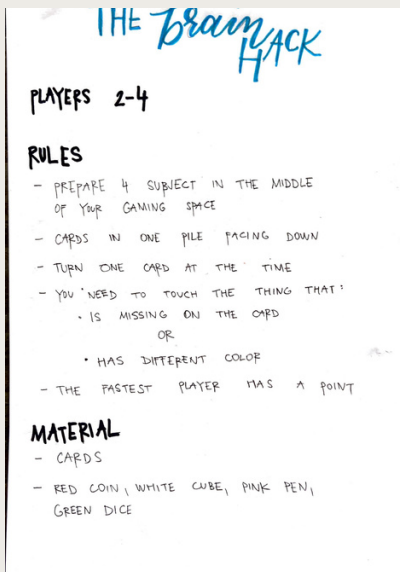 THE Brain
HACK
PLAYERS 2-4
RULES
- PREPARE 4 SUBJECT IN THE MIDDLE
OF YOUR GAMING SPACE
- CARDS IN ONE PILE FACING DOWN
- TURN ONE CARD AT THE TIME
- YOU NEED TO TOUCH THE THING THAT:
• IS MISSING ON THE CARD
OR
• HAS DIFFERENT COLOR
- THE FASTEST PLAYER HAS A POINT
MATERIAL
- CARDS
- RED COIN, WHITE CUBE, PINK PEN,
GREEN DICE